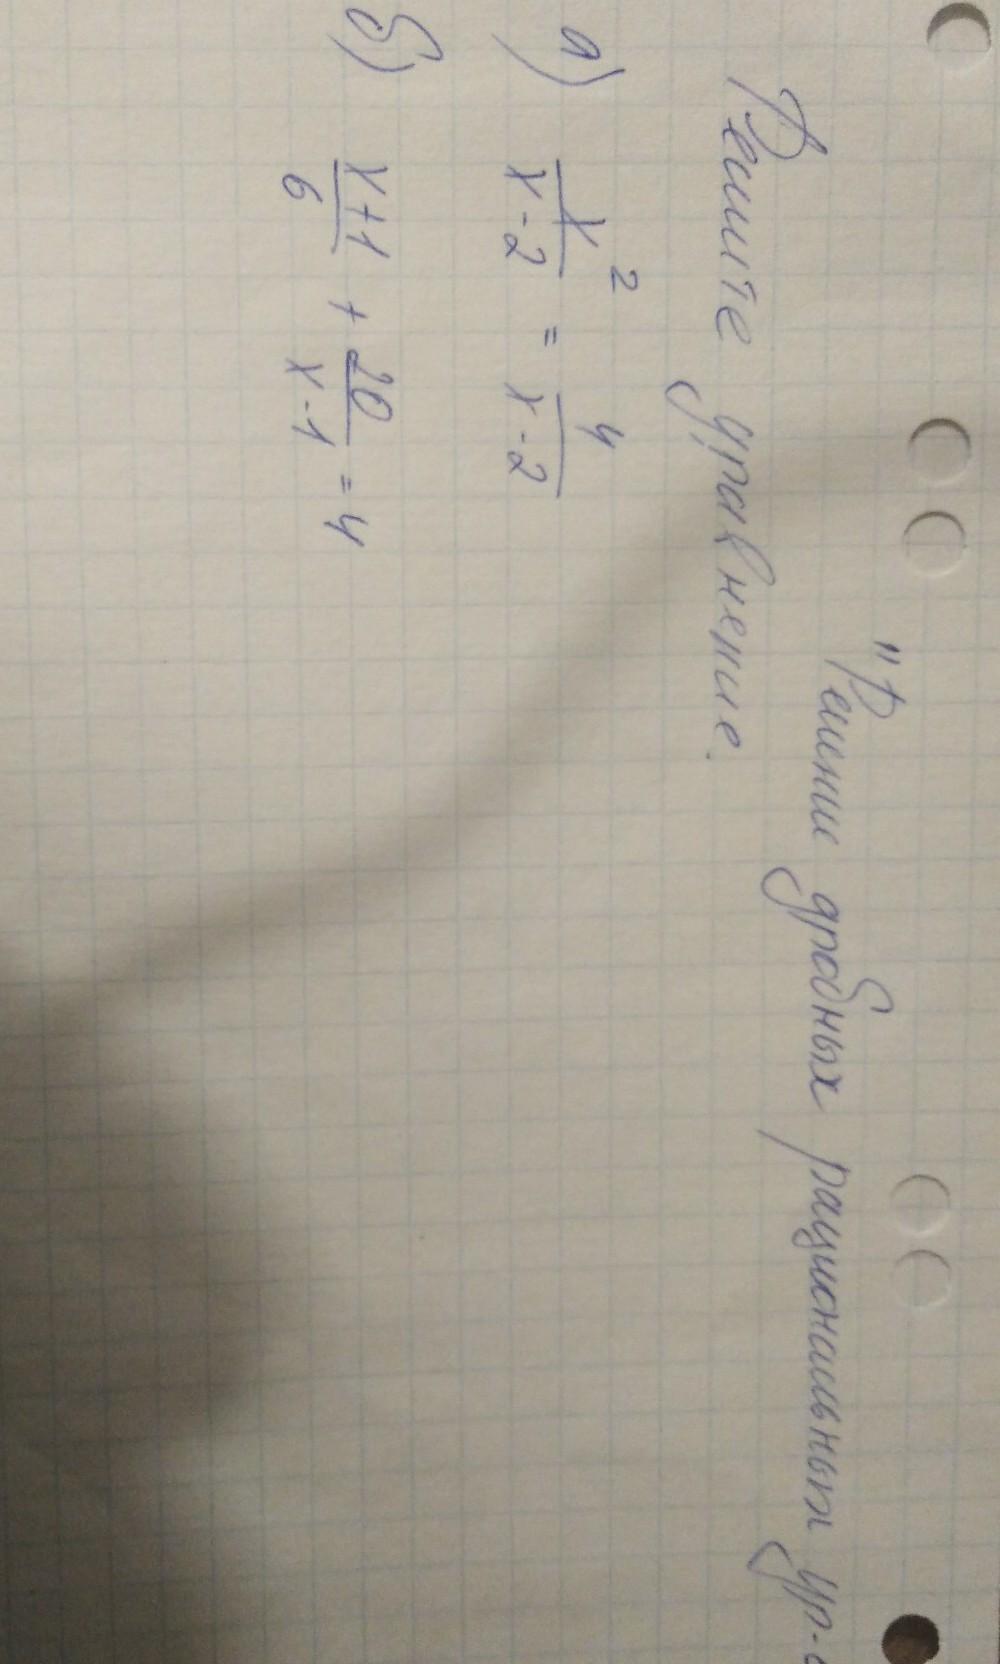 "Решение дробных рациональных ур-
Решите уравнение.
а) x²/(x-2) = 4/(x-2)
б) (x+1)/6 + 20/(x-1) = 4